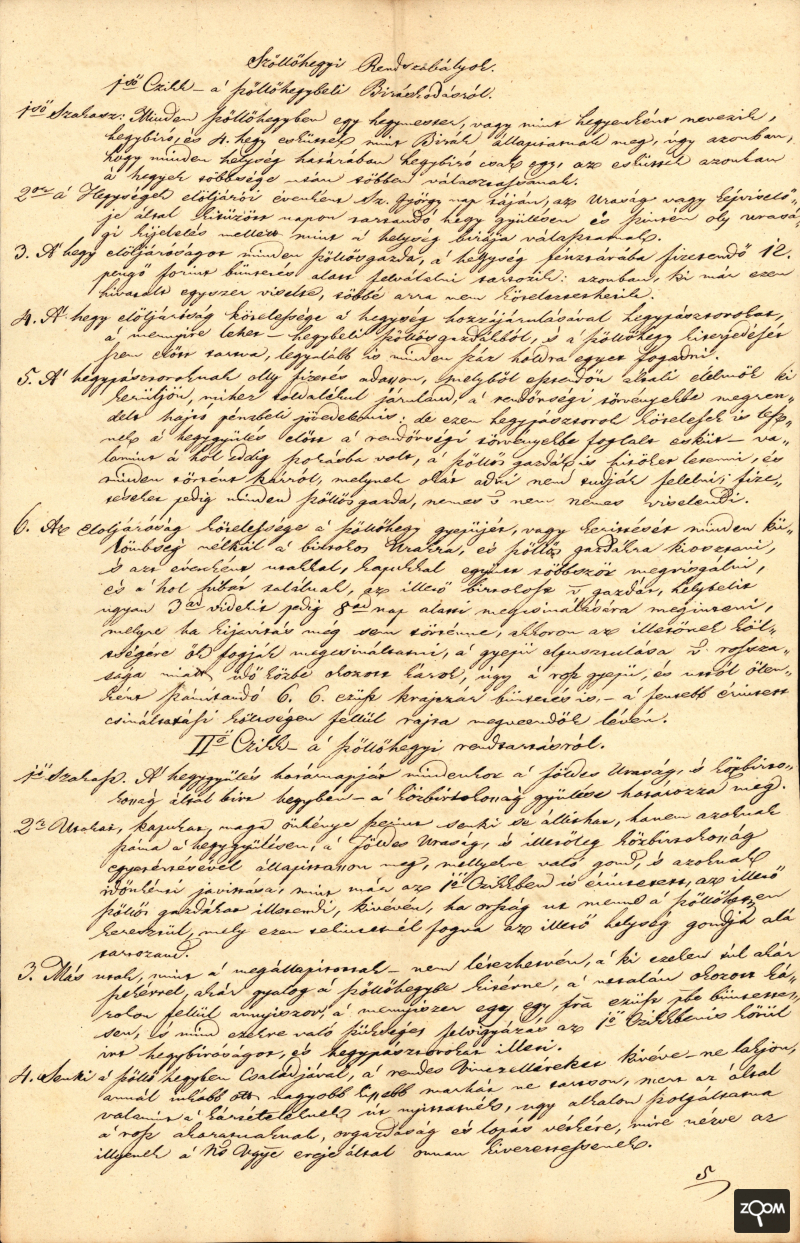 Szőllőhegyi Rendszabályok.
1ső Czikk – á szőllőhegybeli Biráskodásról.
1ső Szakasz: Minden szőllőhegyben egy hegymester, vagy mint hegyenként nevezik,
hegybiró, és 4. hegy esküttek mint Birák állapitatnak meg, úgy azonban,
hogy minden helység határában hegybiró csak egy, az esküttek azonban
á hegyek többsége után többen választassanak.
2or á Hegységek elöljárói évenként Sz. György nap táján, az Uraság vagy képviselő-
je által kitűzött napon tartandó hegy gyülésen és szintén oly urasá-
gi kijelelés mellett mint á helység birája választatnak.
3. A' hegy elöljáróságot minden szőllősgazda, á helység pénztárába fizetendő 12.
pengő forint büntetés alatt felválalni tartozik: azonban, ki már ezen
hivatalt egyszer viselte, többé arra nem köteleztethetik.
4. A' hegy elöljáróság kötelessége á hegység hozzájárulásával hegypásztorokat,
á mennyire lehet – hegybeli szőllősgazdákból, s á szőllőhegy kiterjedését
szem előtt tartva, legalább is minden száz holdra egyet fogadni.
5. A' hegypásztoroknak olly fizetés adasson, melyből esztendőn általi élelmök ki
kerüljön, mihez toldalékul járuland, á rendőrségi törvényekbe megren-
delt hajtó pénzbeli jövedelmis: de ezen hegypásztorok kötelesek is lesz-
nek á hegygyülés előtt á rendőrségi törvényekbe foglalt esküt – va-
lamint á hol eddig szokásba volt, á szőllős gazdák is hitöket letenni, és
minden történt kárról, melynek okát adni nem tudják felelni; fize-
téseket pedig minden szőllősgazda, nemes v nem nemes viselendi.
6. Az elöljáróság kötelessége á szőllőhegy gyepüjét, vagy keritését minden kü-
lömbség nélkül á birtokos Urakra, és szőllős gazdákra kiosztani,
s azt évenként utakkal, kapukkal együtt többször megvizsgálni,
és á hol hibát találnak, az illető birtokost v. gazdát, helybelit
ugyan 3ad vidékit pedig 8ad nap alatt megcsinálására meginteni,
melyre ha kijavitás még sem történne, akkoron az illetőnek költ-
ségére ők fogják megcsináltatni, á gyepü elpusztulása v. rossza-
sága miatt idő közbe okozott károk, úgy á rosz gyepü, és uttól ölen-
ként számitandó 6. 6. ezüst krajczár büntetés is, – á fentebb érintett
csináltatási költségen féllül rajta megveendők lévén.
IIő Czikk – á szőllőhegyi rendtartásról.
1ső Szakasz. A' hegygyülés határnapját mindenkor á földes Uraság, s közbirto-
kosság által birt hegyben – á közbirtokosság gyülése határozza meg.
2or Utakat, kapukat, maga önkénye szerint senki se állithat, hanem azoknak
száma á hegygyülésen, á földes Uraság, s illetőleg közbirtokosság
egyetértésével állapittasson meg, mellyekre való gond, s azoknak
időnkénti javitása, mint már az 1ső Czikkben is érintetett, az illető
szőllős gazdákat illetendi, kivévén, ha ország út menne á szőllőhegyen
keresztül, mely ezen tekintetnél fogva az illető helység gondja alá
tartozand.
3. Más utak, mint á megállapitottak – nem létezhetvén, á ki ezeken túl akár
szekérrel, akár gyalog á szőllőhegybe kitérne, á uttalán okozott ká-
rokon fellül annyiszor, á mennyiszer egy egy fra ezüst pbe büntettes-
sen, és mind ezekre való szükséges felvigyázás az 1ső Czikkbenis körül
irt hegybiróságot, és hegypásztorokat illeti.
4. Senki á szőllő hegyben Családjával, á rendes Vinczelléreket kivéve – ne lakjon,
annál inkább ott nagyobb kissebb marhát ne tartson, mert az által
valamint á kártételeknek út nyittatnék, ugy alkalom szolgáltatna
á rosz akaratuaknak, orgazdaság és lopás vétkére, mire nézve az
illyenek á Ns Vgye ereje által onnan kiverettessenek.
5
ZOOM